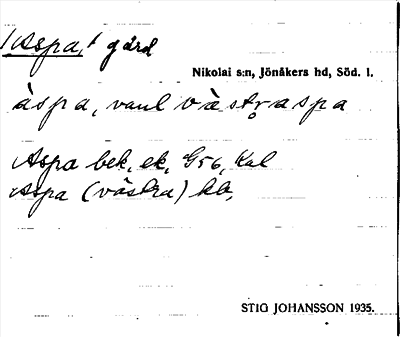 /Aspa,/ gård
Nikolai s:n, Jönåkers hd, Söd. l.
àspa, vanl västraspa
Aspa bek, ek, G56, Kal
Aspa (västra) kb,
STIG JOHANSSON 1935.